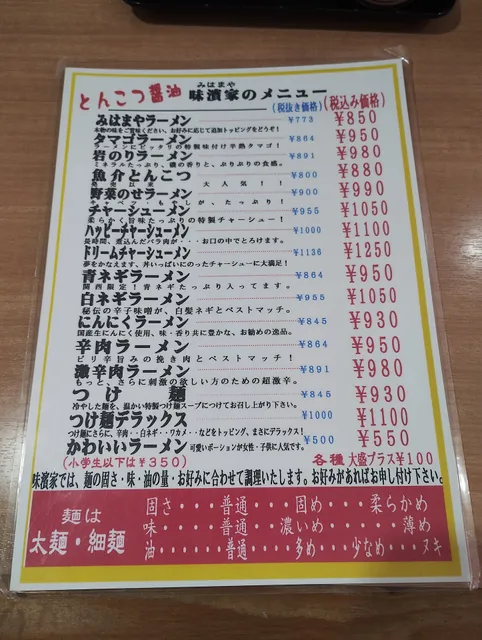 とんこつ醤油 みはまや 味濱家のメニュー
(税抜き価格) (税込み価格)
みはまやラーメン ¥773 ¥850
本物の味をご賞味ください、お好みに応じて追加トッピングをどうぞ!
タマゴラーメン ¥864 ¥950
ラーメンにピッタリの特製味付け半熟タマゴ!
岩のりラーメン ¥891 ¥980
ミネラルたっぷり、磯の香りと、ぷりぷりの食感。
魚介とんこつ ¥800 ¥880
大人気!!
野菜のせラーメン ¥900 ¥990
キャベツ・もやしが、たっぷり!
チャーシューメン ¥955 ¥1050
柔らかく旨味たっぷりの特製チャーシュー!
ハッピーチャーシューメン ¥1000 ¥1100
長時間、煮込んだバラ肉が・・・お口の中でとろけます。
ドリームチャーシューメン ¥1136 ¥1250
夢をかなえます、丼いっぱいにのったチャーシューに大満足!
青ネギラーメン ¥864 ¥950
関西限定!青ネギたっぷり入ってます。
白ネギラーメン ¥955 ¥1050
秘伝の辛子味噌が、白髪ネギとベストマッチ。
にんにくラーメン ¥845 ¥930
国産生にんにく使用、味・香り共に豊かな、お勧めの逸品。
辛肉ラーメン ¥864 ¥950
ピリ辛旨みの挽き肉とベストマッチ!
激辛肉ラーメン ¥891 ¥980
もっと、さらに刺激の欲しい方のための超激辛。
つけ麺 ¥845 ¥930
冷やした麺を、温かい特製つけ麺スープにつけてお召し上がり下さい。
つけ麺デラックス ¥1000 ¥1100
つけ麺にさらに、辛肉・・白ネギ・・ワカメ・・などをトッピング、まさにデラックス!
かわいいラーメン 可愛いポーションが女性・子供に人気です。 ¥500 ¥550
(小学生以下は¥350) 各種 大盛プラス¥100
味濱家では、麺の固さ・味・油の量・お好みに合わせて調理いたします。お好みがあればお申し付け下さい。
麺は
太麺・細麺
固さ・・・普通・・・・固め・・・・柔らかめ
味・・・・普通・・濃いめ・・・・・・・薄め
油・・・・普通・・・・多め・・・少なめ・・・ヌキ